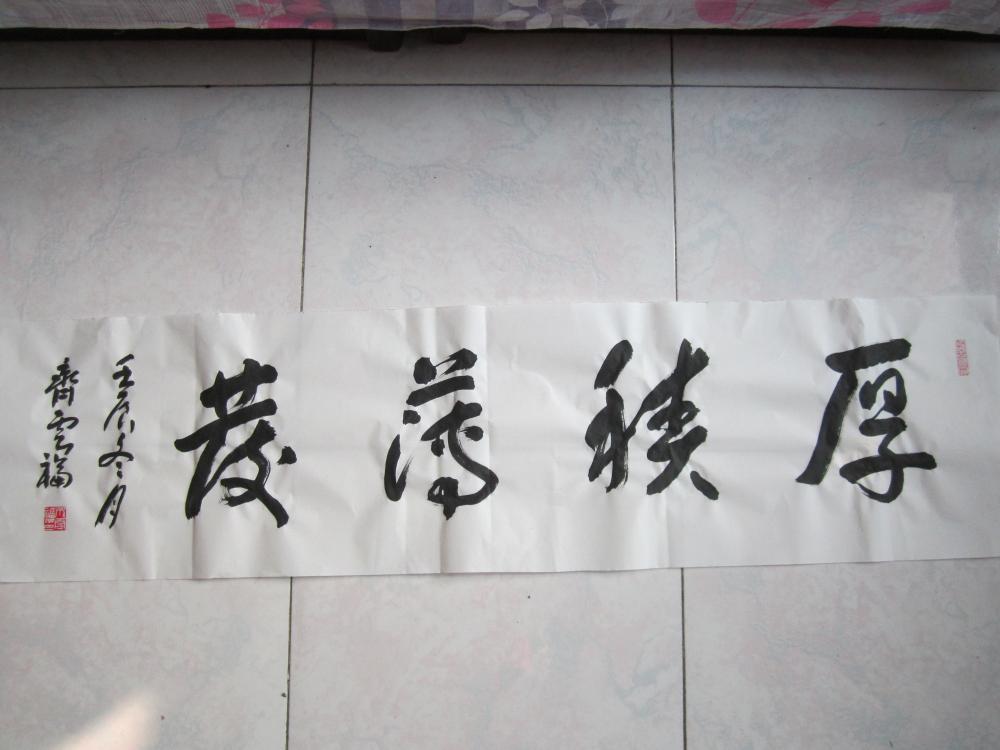 厚積薄發
壬辰冬月
齊雲福